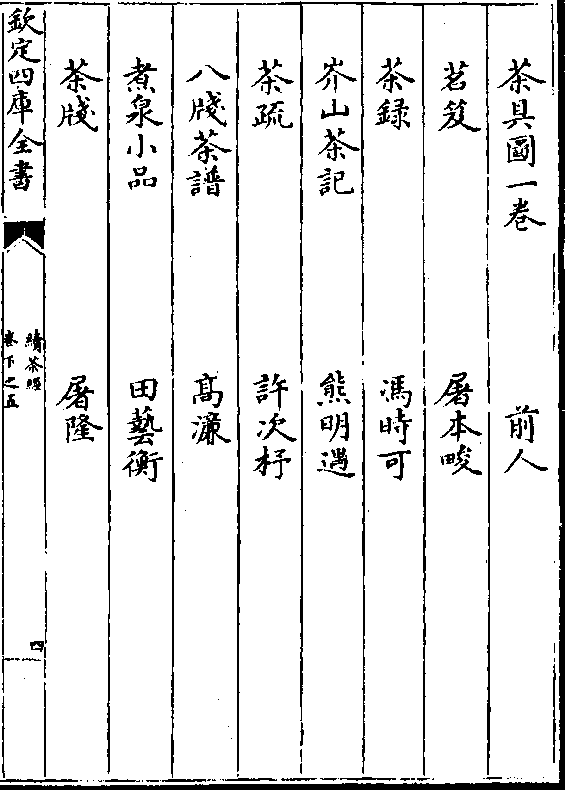 茶具圖一卷 前人
茗笈 屠本畯
茶録 馮時可
岕山茶記 熊明遇
茶疏 許次杼
八牋茶譜 高濂
煮泉小品 田藝衡
茶牋 屠隆
欽定四庫全書
續茶經
卷下之五
四